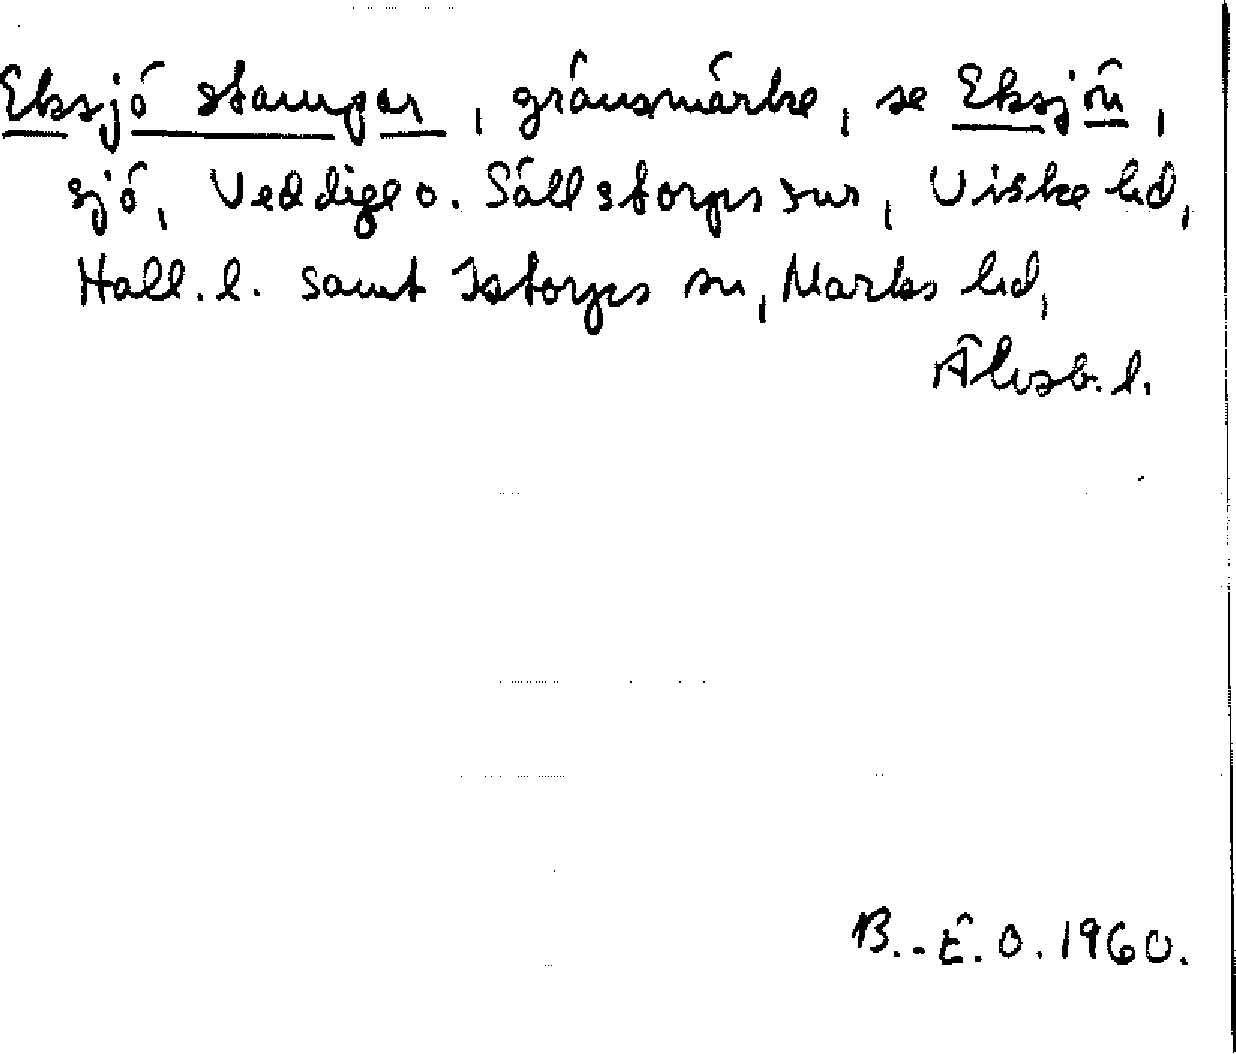 Eksjö stampar, gränsmärke, se Eksjön,
sjö, Veddige o. Sällstorps snr, Viske hd,
Hall. l. samt Istorps sn, Marks hd,
Älvsb. l.
B.-E. O. 1960.